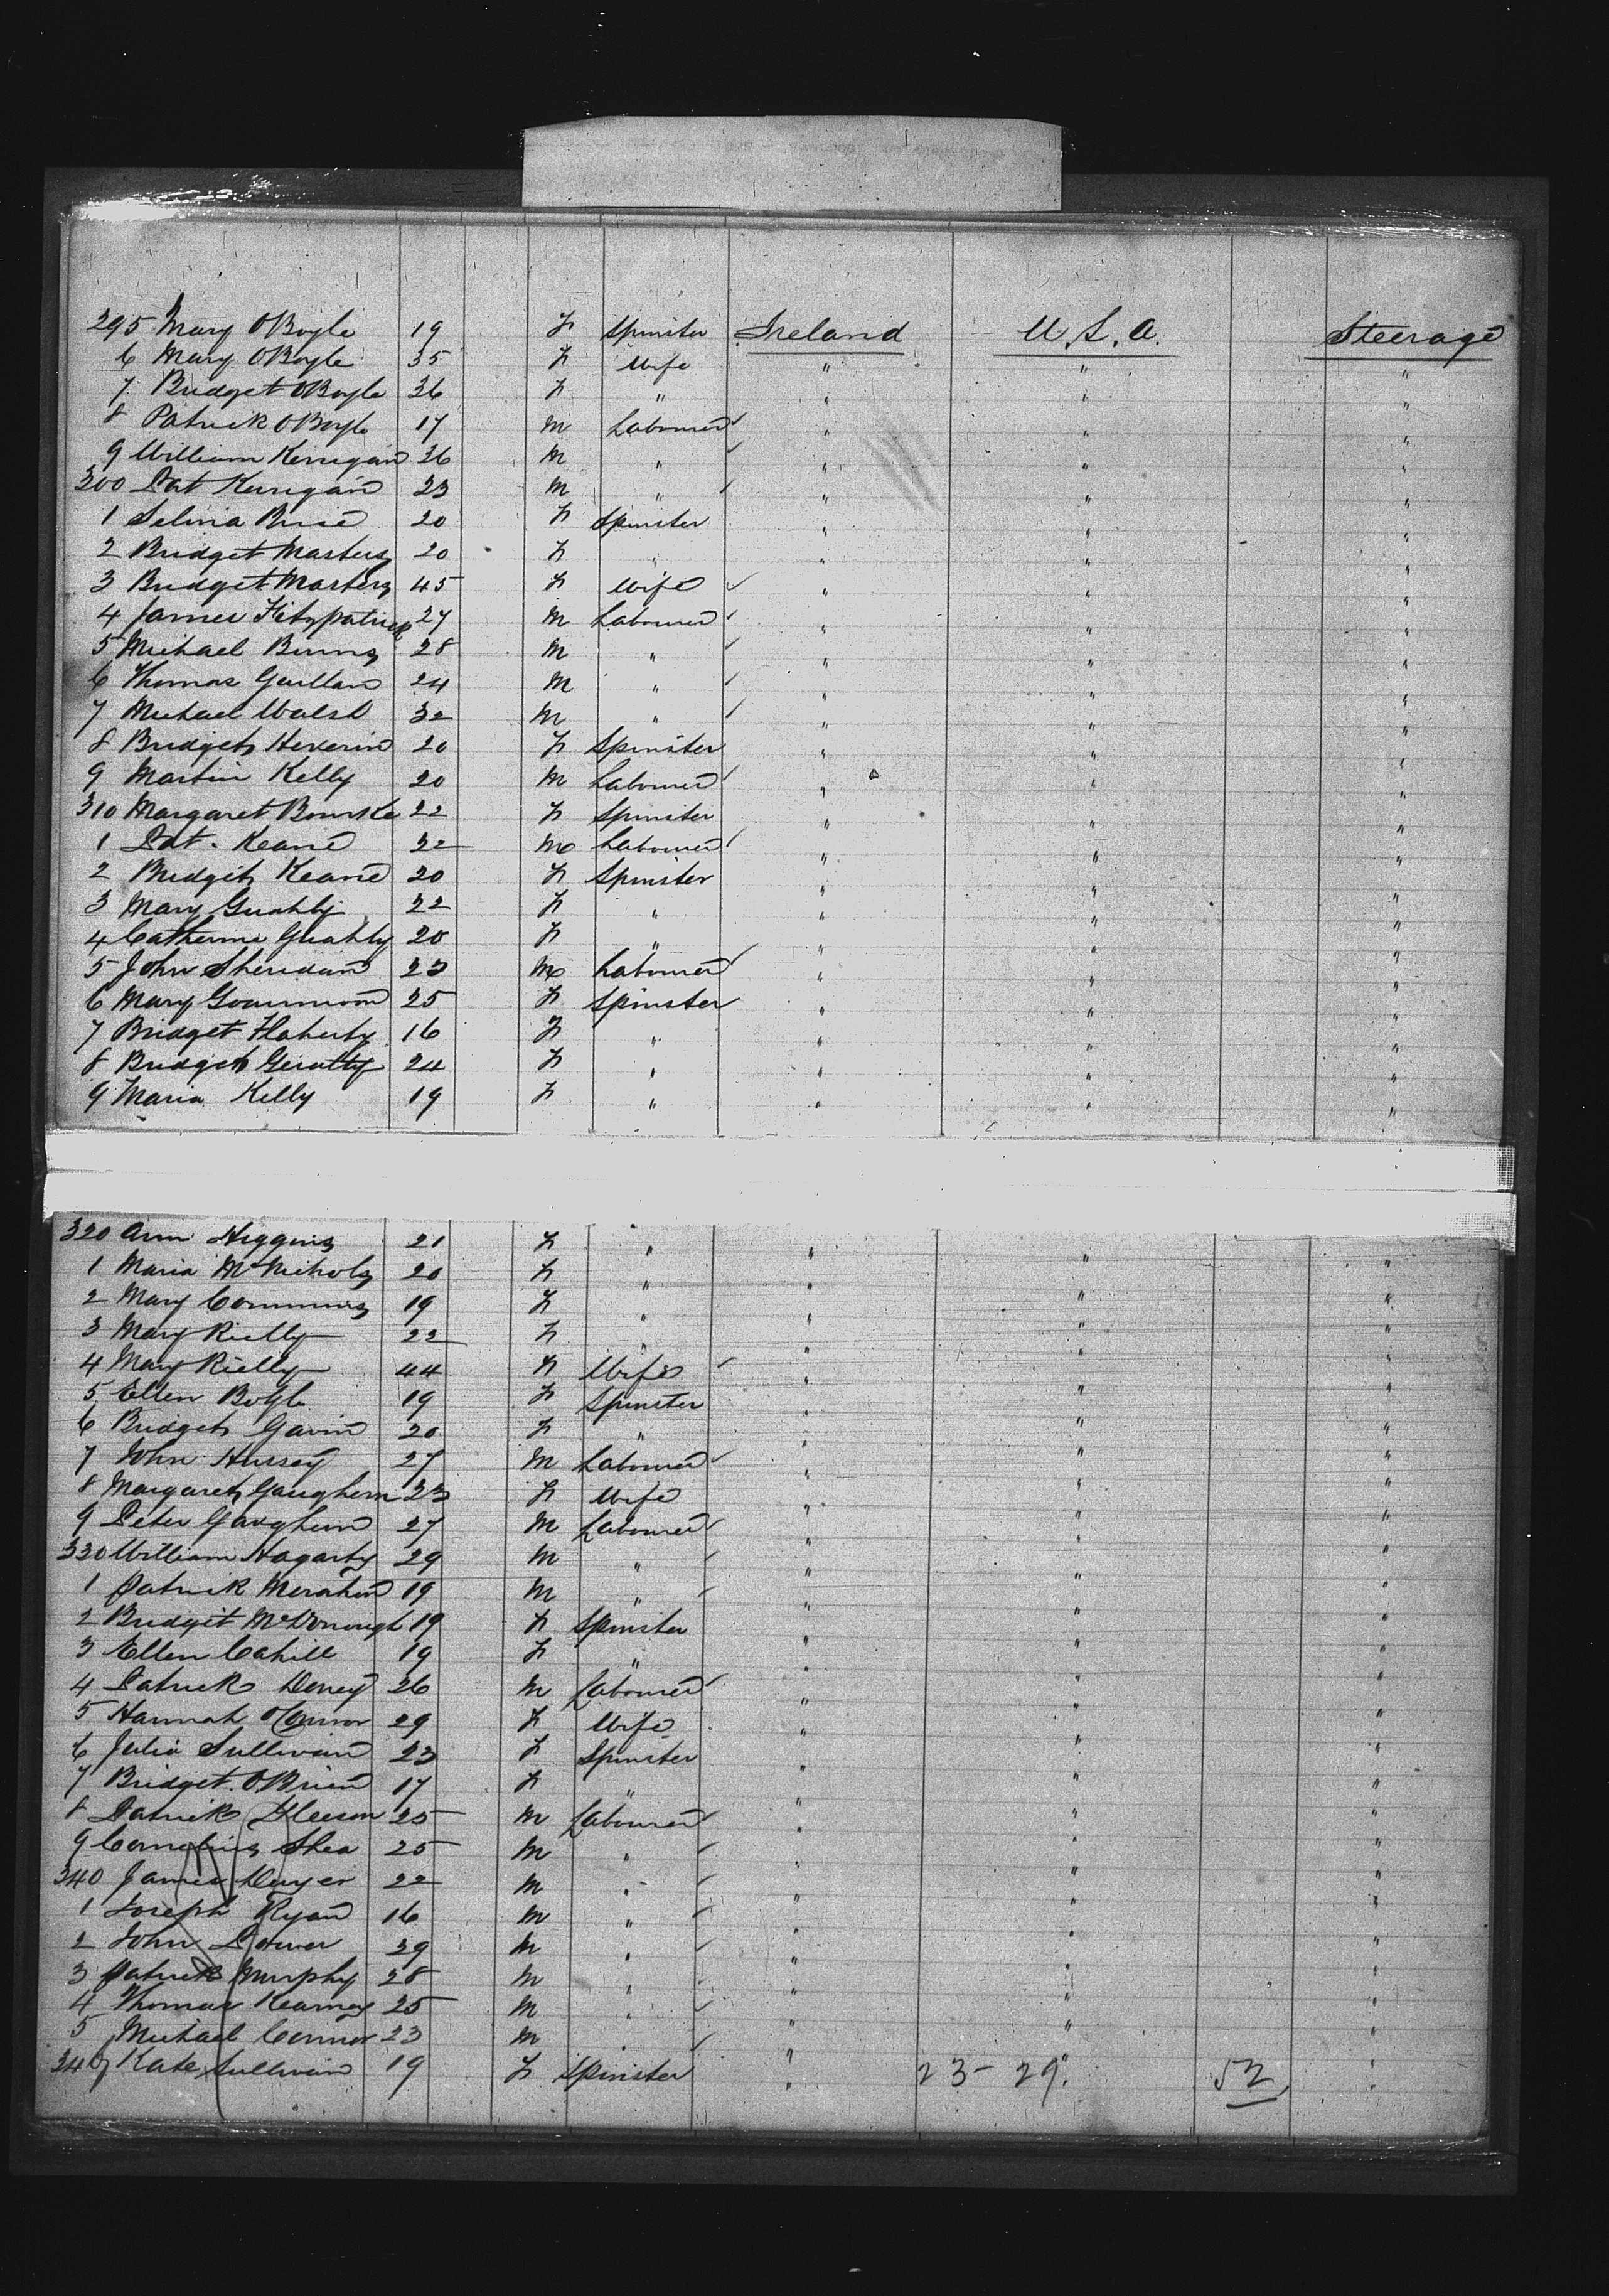 295 Mary OBoyle 19 F Spinster Ireland U.S.A. Steerage
6 Mary OBoyle 35 F Wife " " "
7 Bridget OBoyle 36 F " " " "
8 Patrick OBoyle 17 M Labourer " " "
9 William Kerrigan 36 M " " " "
300 Pat Kerrigan 23 M " " " "
1 Selina 20 F Spinster " " "
2 Bridget Masters 20 F " " " "
3 Bridget Masters 45 F Wife " " "
4 James Fitzpatrick 27 M Labourer " " "
5 Michael Burns 28 M " " " "
6 Thomas 24 M " " " "
7 Michael Walsh 32 M " " " "
8 Bridget Keverin 20 F Spinster " " "
9 Martin Kelly 20 M Labourer " " "
310 Margaret Bourke 22 F Spinster " " "
1 Pat. Keane 22 M Labourer " " "
2 Bridget Keane 20 F Spinster " " "
3 Mary 22 F " " " "
4 Catherine 20 F " " " "
5 John Sheridan 23 M Labourer " " "
6 Mary 25 F Spinster " " "
7 Bridget Flaherty 16 F " " " "
8 Bridget Geratty 24 F " " " "
9 Maria Kelly 19 F " " " "
320 Ann Higgins 21 F " " " "
1 Maria McNichols 20 F " " " "
2 Mary Commins 19 F " " " "
3 Mary Rielly 22 F " " " "
4 Mary Rielly 44 F Wife " " "
5 Ellen Boyle 19 F Spinster " " "
6 Bridget Gavin 20 F " " " "
7 John Hussey 27 M Labourer " " "
8 Margaret Gaughern 23 F Wife " " "
9 Peter Gaughern 27 M Labourer " " "
330 William Hagarty 29 M " " " "
1 Patrick 19 M " " " "
2 Bridget McDonough 19 F Spinster " " "
3 Ellen Cahill 19 F " " " "
4 Patrick 26 M Labourer " " "
5 Hannah OConnor 29 F Wife " " "
6 Julia Sullivan 23 F Spinster " " "
7 Bridget OBrien 17 F " " " "
8 Patrick Gleeson 25 M Labourer " " "
9 Cornelius Shea 25 M " " " "
340 James Dwyer 22 M " " " "
1 Joseph Ryan 16 M " " " "
2 John Power 29 M " " " "
3 Patrick Murphy 28 M " " " "
4 Thomas Kearney 25 M " " " "
5 Michael Connor 23 M " " "
346 Kate Sullivan 19 F Spinster " 23 - 29. 52 "